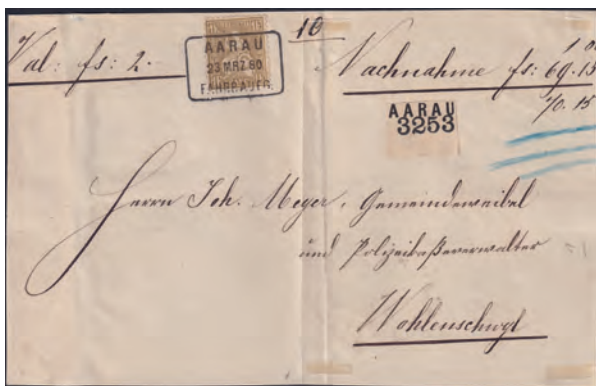 10
Val: fs: 2.
AARAU
23 MRZ 80
FAHRPAUFG.
Nachnahme fs: 69.15
70.15
AARAU
3253
Herrn Joh. Meyer, Gemeindeweibel
und Polizeikaßaverwalter
Wohlenschwyl